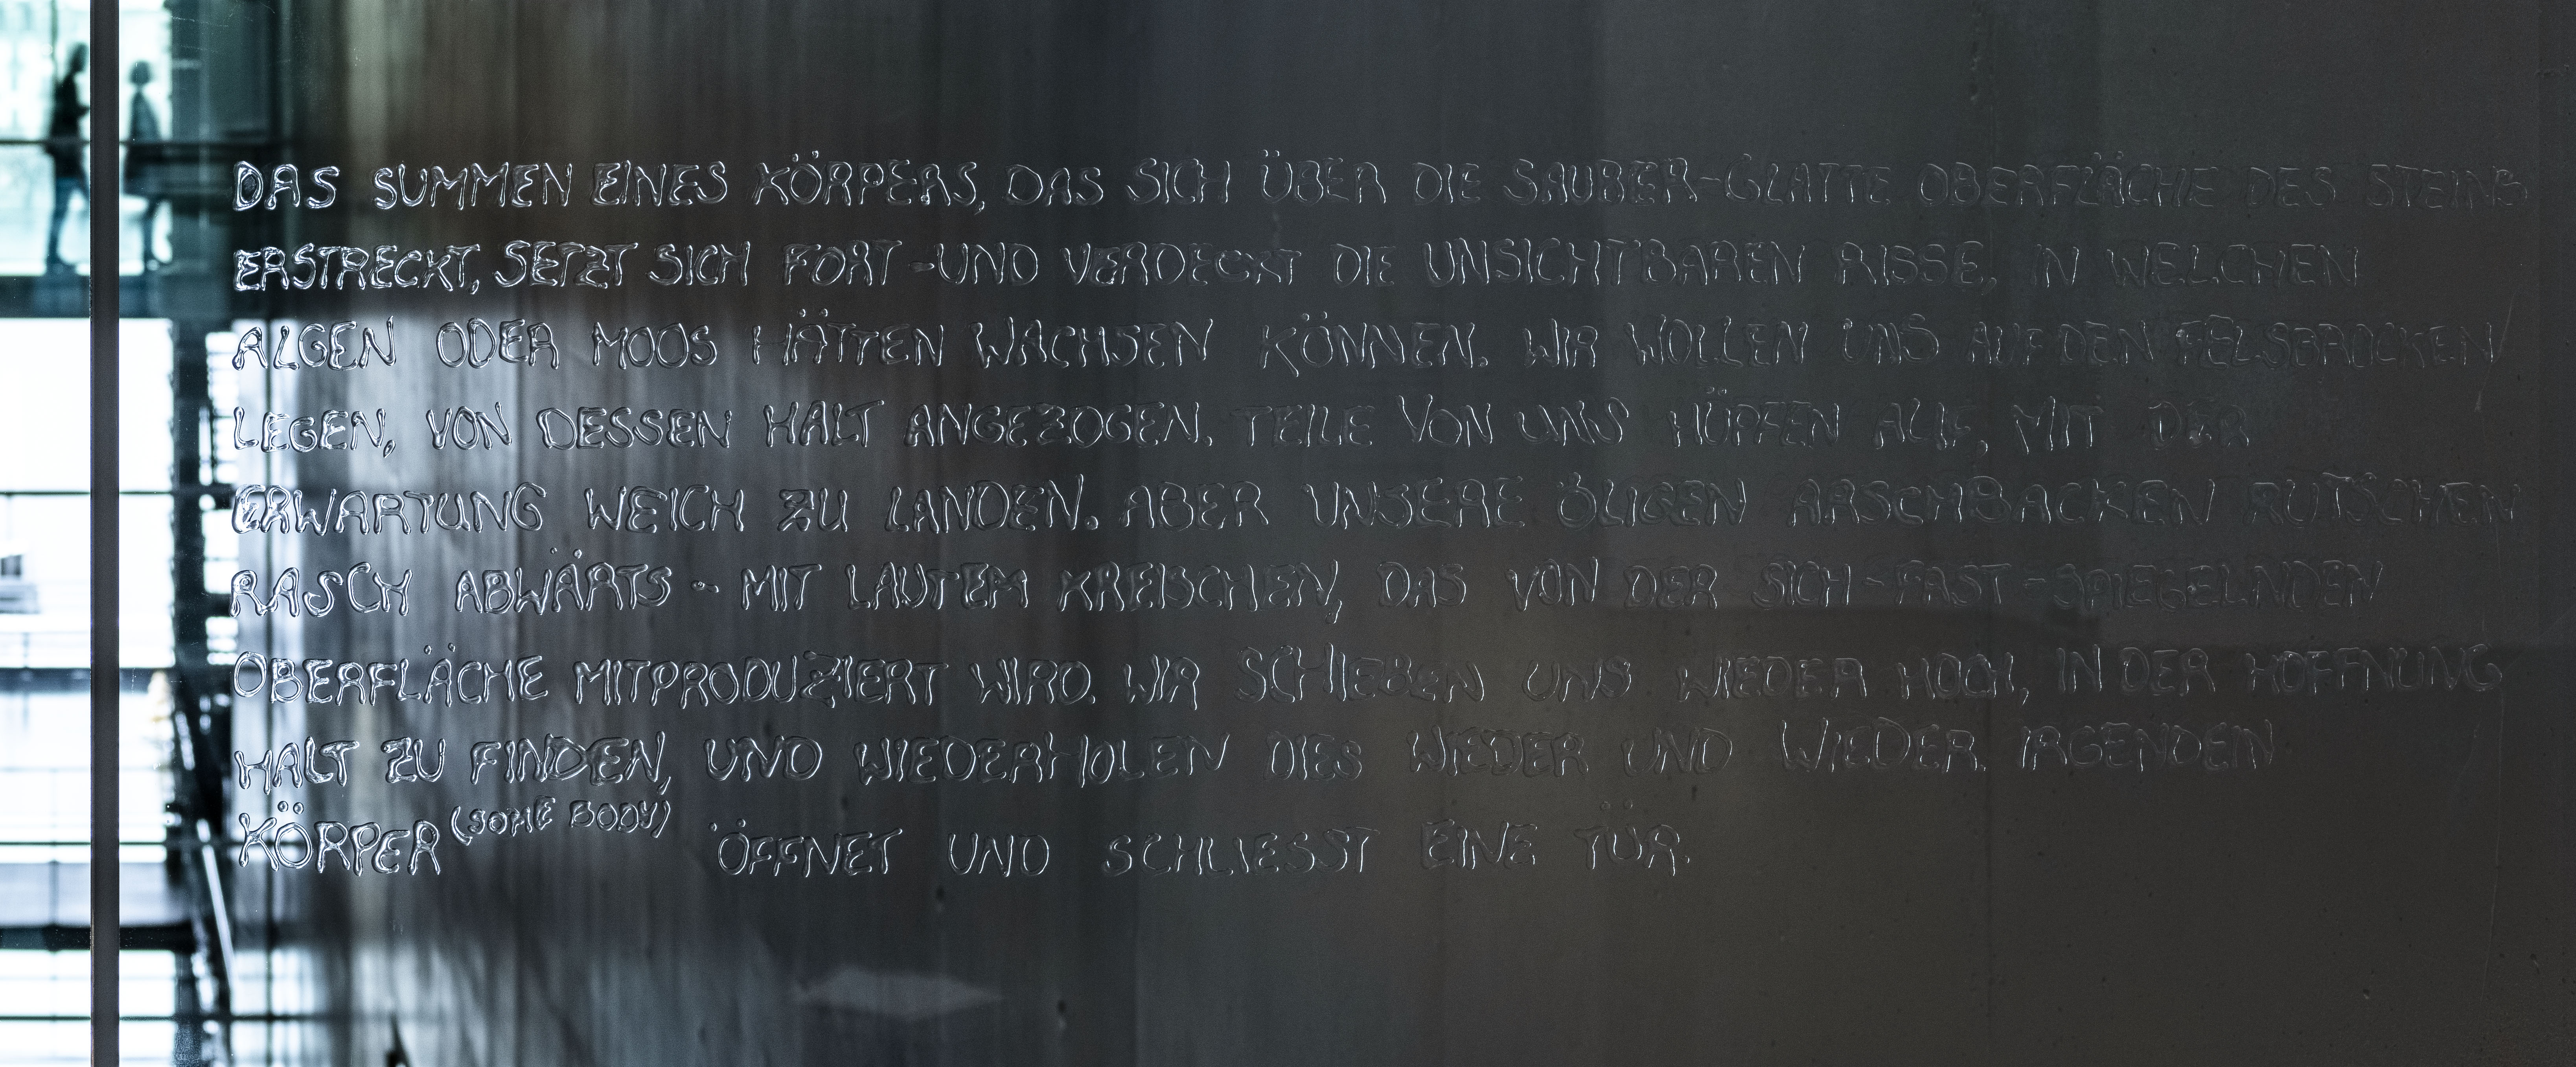 DAS SUMMEN EINES KÖRPERS, DAS SICH ÜBER DIE SAUBER-GLATTE OBERFLÄCHE DES STEINS
ERSTRECKT, SETZT SICH FORT - UND VERDECKT DIE UNSICHTBAREN RISSE, IN WELCHEN
ALGEN ODER MOOS HÄTTEN WACHSEN KÖNNEN. WIR WOLLEN UNS AUF DEN FELSBROCKEN
LEGEN, VON DESSEN HALT ANGEZOGEN. TEILE VON UNS HÜPFEN AUF, MIT DER
ERWARTUNG WEICH ZU LANDEN. ABER UNSERE ÖLIGEN ARSCHBACKEN RUTSCHEN
RASCH ABWÄRTS - MIT LAUTEM KREISCHEN, DAS VON DER SICH-FAST-SPIEGELNDEN
OBERFLÄCHE MITPRODUZIERT WIRD. WIR SCHIEBEN UNS WIEDER HOCH, IN DER HOFFNUNG
HALT ZU FINDEN, UND WIEDERHOLEN DIES WIEDER UND WIEDER. IRGENDEIN
KÖRPER (SOME BODY) ÖFFNET UND SCHLIESST EINE TÜR.